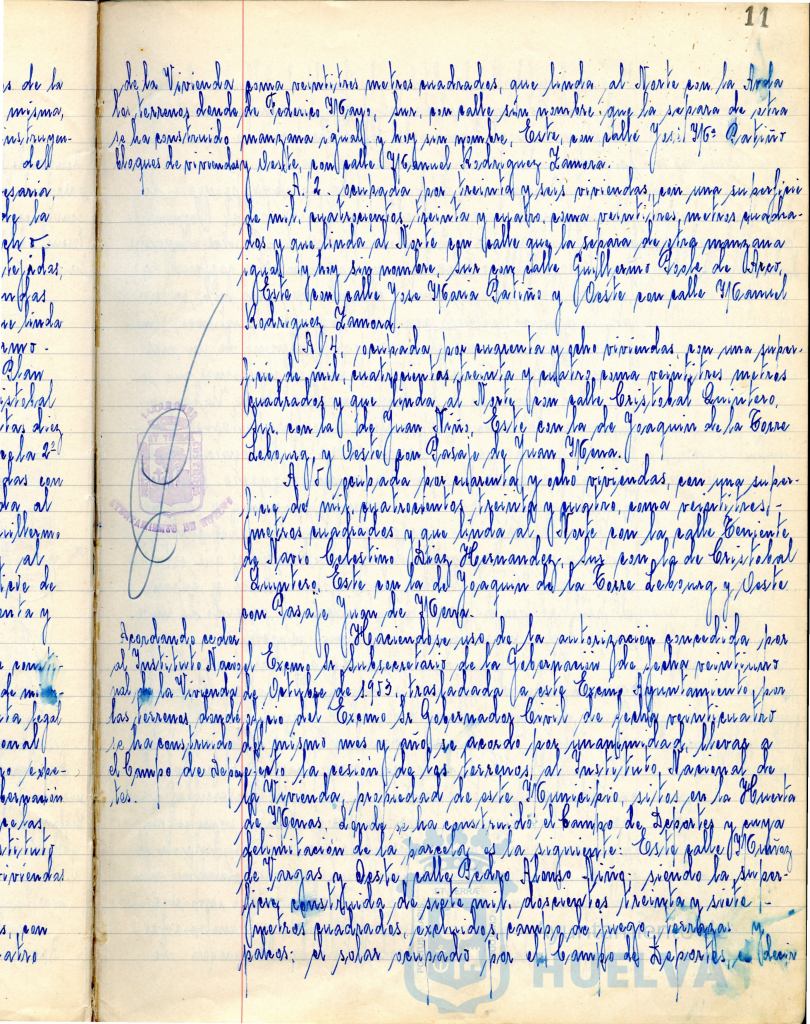 11
de la Vivienda
los terrenos donde
se ha construido
bloques de viviendas
coma veintitres metros cuadrados, que linda al Norte con la Avda
de Federico Mayo, Sur, con calle sin nombre que la separa de otra
manzana igual y hoy sin nombre, Este, con calle José Mª Patiño
y Oeste, con calle Manuel Rodriguez Zamora.
A/2. ocupada por treinta y seis viviendas, con una superficie
de mil cuatrocientos treinta y cuatro, coma veintitres, metros cuadra-
dos y que linda al Norte con calle que la separa de otra manzana
igual y hoy sin nombre, Sur con calle Guillermo Poole de Arco,
Este con calle Jose Maria Patiño y Oeste con calle Manuel
Rodriguez Zamora.
A/4, ocupada, por cuarenta y ocho viviendas, con una super-
ficie de mil, cuatrocientos treinta y cuatro, coma veintitres metros
cuadrados y que linda al Norte con calle Cristobal Quintero,
Sur, con la de Juan Niño, Este con la de Joaquin de la Torre
Lebourg, y Oeste con Pasaje de Juan Mena.
A/5 ocupada por cuarenta y ocho viviendas, con una super-
ficie de mil, cuatrocientos treinta y cuatro, coma veintitres,-
metros cuadrados y que linda al Norte con la calle Teniente
de Navio Celestino Diaz Hernandez, Sur con la de Cristobal
Quintero, Este con la de Joaquin de la Torre Lebourg y Oeste
con Pasaje Juan de Mena.
Acordando ceder
al Instituto Nacio
nal de la Vivienda
los terrenos donde
se ha construido
el Campo de Depor
tes.
Haciendose uso de la autorizacion concedida por
el Excmo Sr Subsecretario de la Gobernacion de fecha veintiuno
de Octubre de 1953, trasladada a este Excmo Ayuntamiento por
oficio del Excmo Sr Gobernador Civil de fecha veinticuatro
del mismo mes y año, se acordo por unanimidad, llevar a
efecto la cesion de los terrenos, al Instituto, Nacional de
la Vivienda, propiedad de este Municipio, sitos en la Huerta
de Menas, donde se ha construido el Campo de Deportes y cuya
delimitacion de la parcela es la siguiente: Este calle Muñoz
de Vargas y Oeste, calle Pedro Alonso Niño, siendo la super-
ficie construida de siete mil, doscientos treinta y siete -
metros cuadrados, excluidos, campo de juego, terrazas y
paseos; el solar ocupado por el Campo de Deportes, es decir
HUELVA